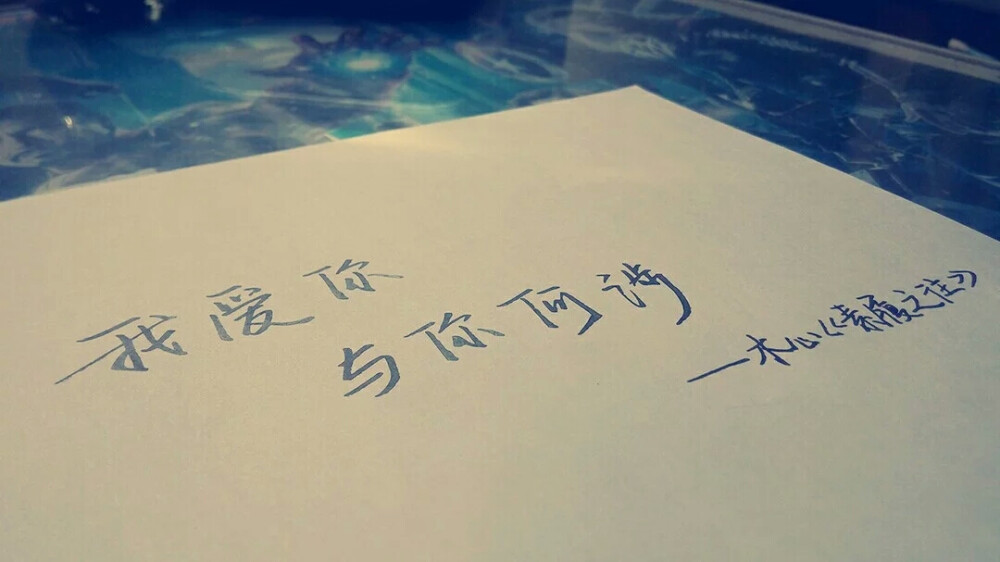 我爱你
与你何涉
—木心《素履之往》